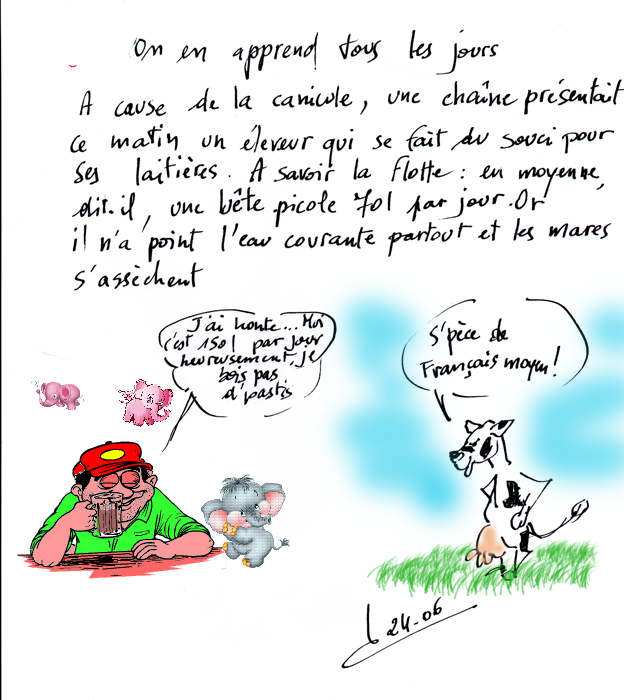 On en apprend tous les jours
A cause de la canicule, une chaîne présentait
ce matin un éleveur qui se fait du souci pour
ses laitières. A savoir la flotte : en moyenne,
dit-il, une bête picole 70l par jour. Or
il n'a point l'eau courante partout et les mares
s'assèchent
J'ai honte... Moi
c'est 150l par jour
heureusement, je
bois pas
d'pastis
S'pèce de
Français moyen!
24-06